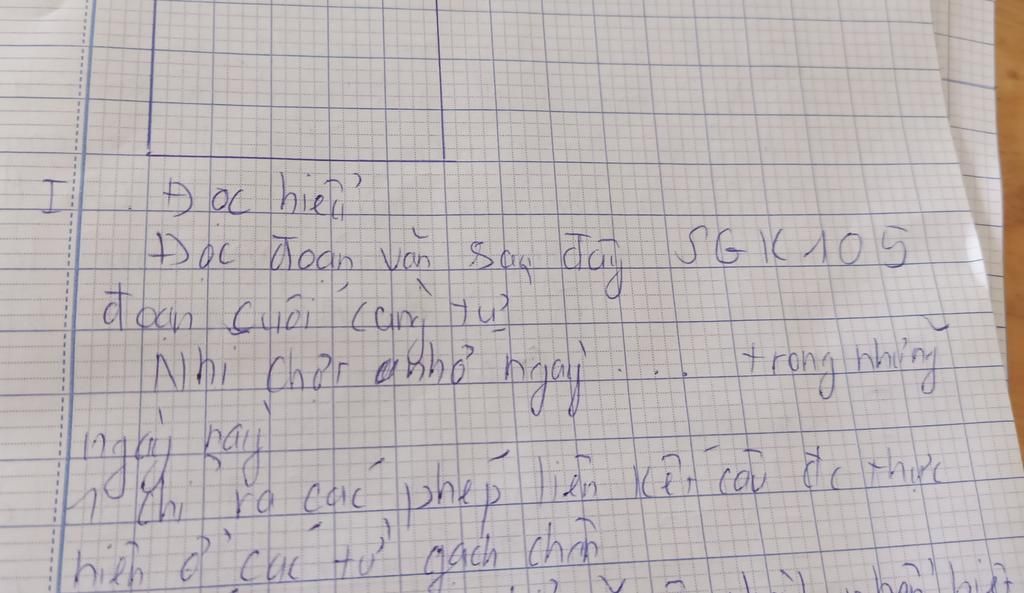 I. Đọc hiểu
Đọc đoạn văn sau đây SGK 105
đoạn cuối cùng từ
Nhi chợt nhớ ngày .... trong những
ngày này
1) Chỉ ra các phép liên kết câu đc thực
hiện ở các từ gạch chân